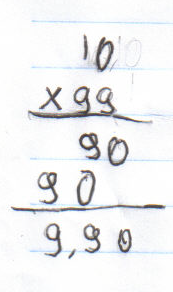 10
×99
90
90
9,90